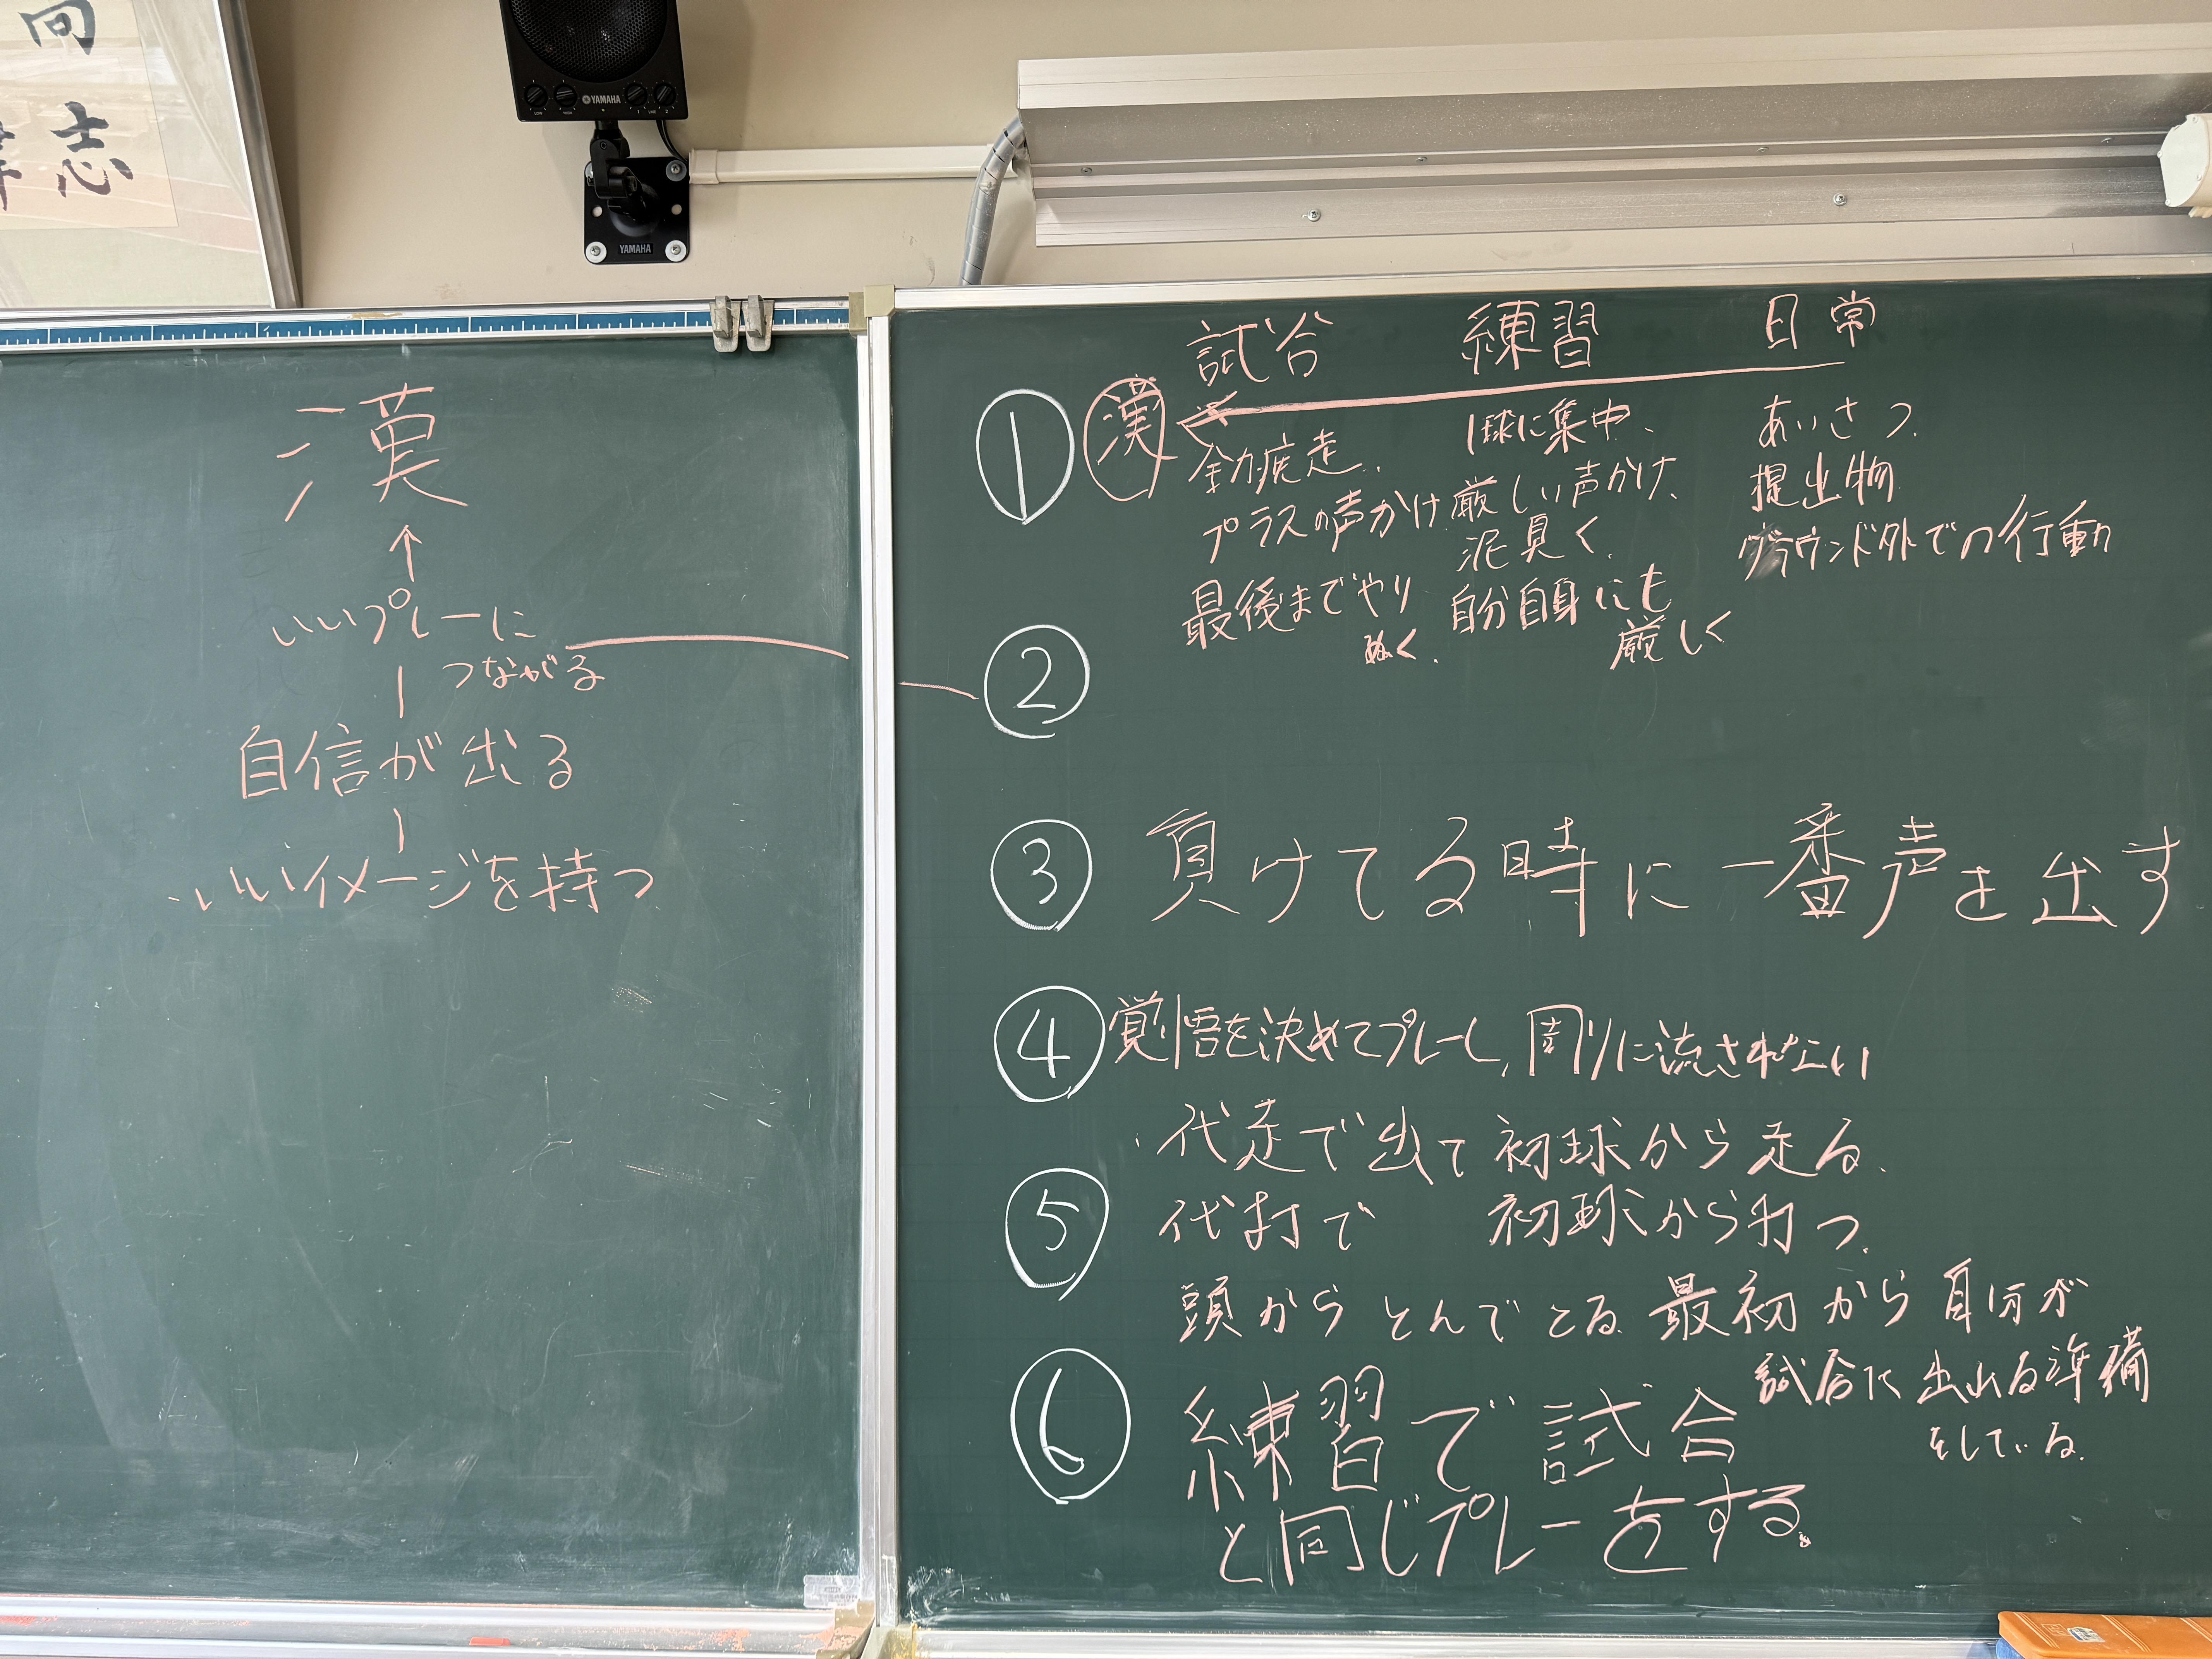 向
志
YAMAHA
YAMAHA
漢
↑
いいプレーに
つながる
自信が出る
いいイメージを持つ
試合 練習 日常
① 漢
全力疾走、 1球に集中、 あいさつ、
プラスの声かけ 厳しい声かけ、 提出物
泥臭く、 グラウンド外での行動
最後までやり 自分自身にも
ぬく、 厳しく
②
③ 負けてる時に一番声を出す
④ 覚悟を決めてプレーし、周りに流されない
・代走で出て初球から走る、
⑤ 代打で 初球から打つ、
頭からとんでとる 最初から自分が
試合に出れる準備
をしている、
⑥ 練習で試合
と同じプレーをする。